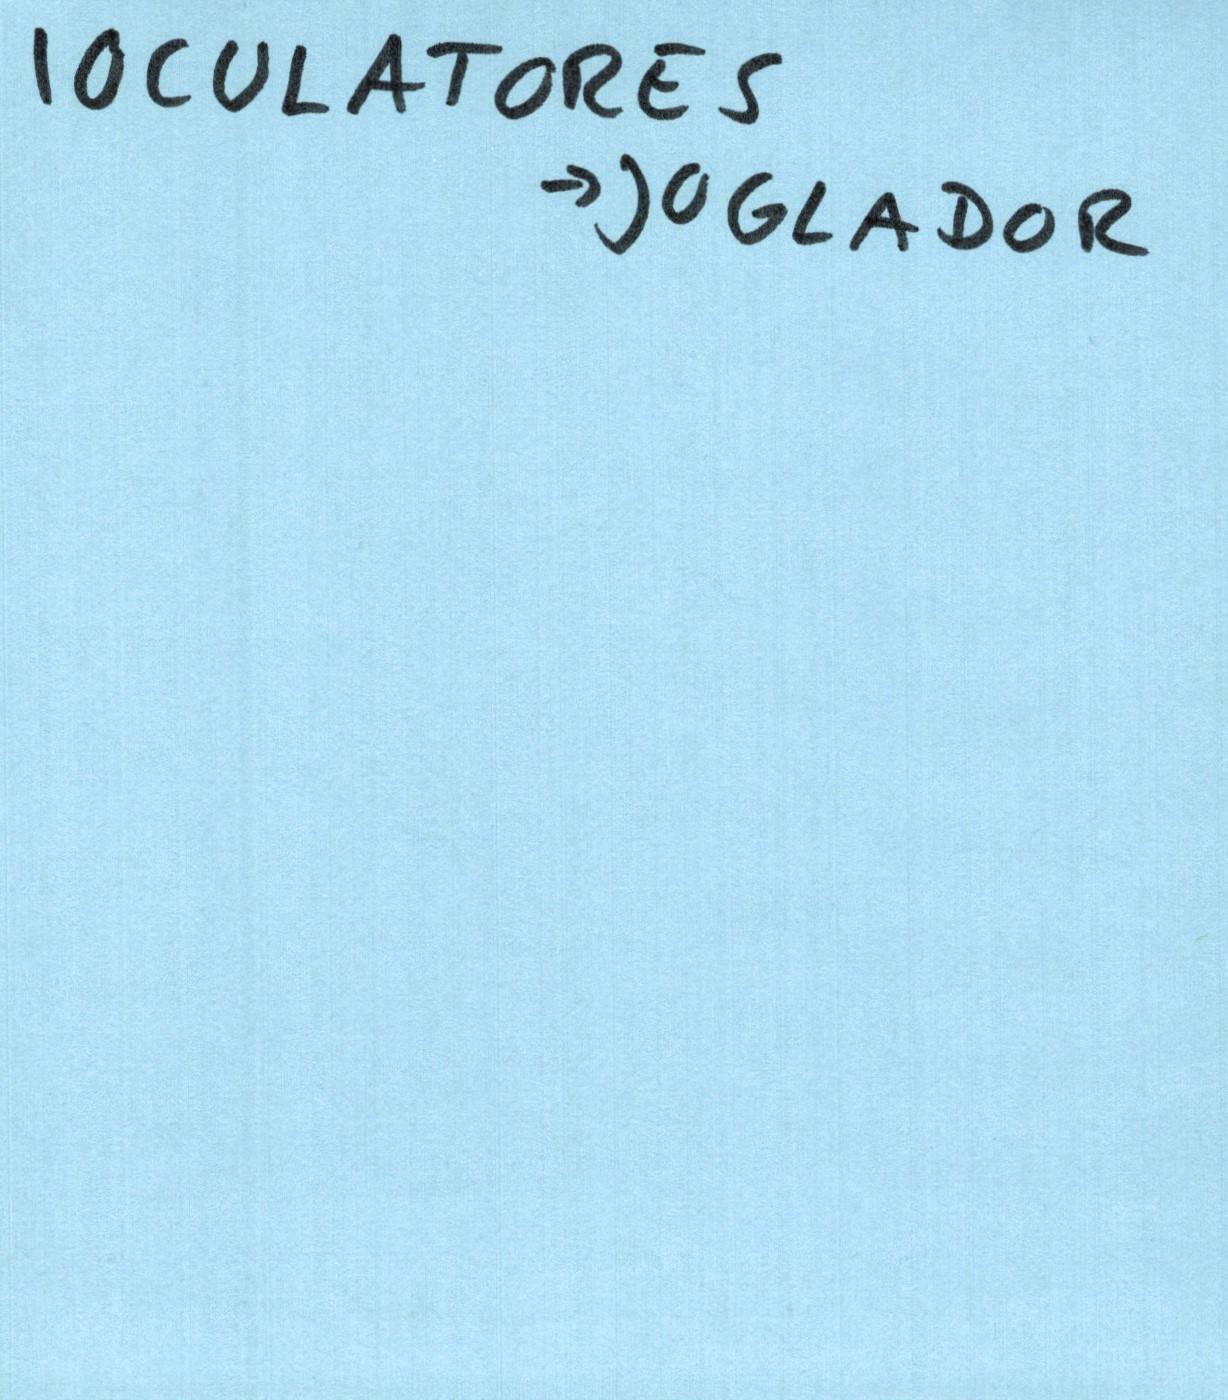 IOCULATORES
→JOGLADOR